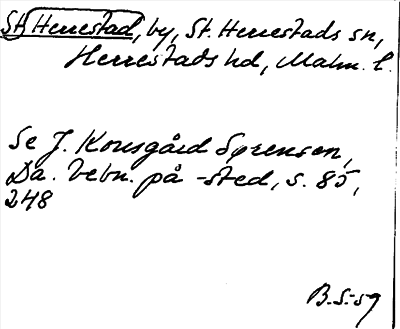 St. Herrestad, by, St. Herrestads sn,
Herrestads hd, Malm. l.
Se J. Kousgård Sørensen,
Da. bebn. på -sted, s. 85,
248
B.S-sg